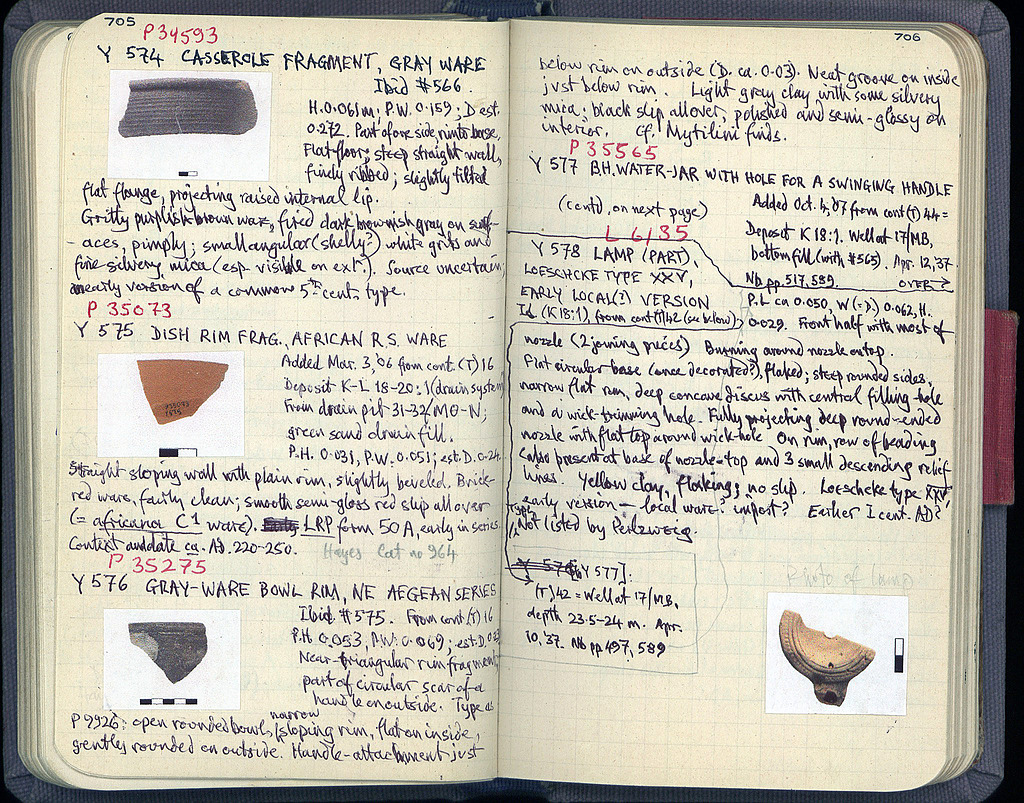 705
P 34593
Y 574 CASSEROLE FRAGMENT, GRAY WARE
Ibid #566.
H. 0.061m; P.W. 0.159; D est.
0.272. Part of one side, rim to base.
Flat floor; steep straight wall,
finely ribbed; slightly tilted
flat flange, projecting raised internal lip.
Gritty purplish-brown ware, fired dark brownish gray on surf-
aces, pimply; small angular (shelly?) white grits and
fine silvery mica (esp. visible on ext.). Source uncertain,
early version of a common 5th cent. type.
P 35073
Y 575 DISH RIM FRAG., AFRICAN R.S. WARE
Added Mar. 3, '06 from cont. (T) 16
Deposit K-L 18-20:1 (drain system)
From drain pit 31-32/ΜΘ-Ν;
green sand drain fill.
P.H. 0.031, P.W. 0.051; est. D. 0.24.
Straight sloping wall with plain rim, slightly beveled. Brick-
red ware, fairly clean; smooth semi-gloss red slip all over
(= africana C1 ware). LRP form 50 A, early in series.
Context and date ca. AD. 220-250. Hayes Cat no 964
P 35275
Y 576 GRAY-WARE BOWL RIM, NE AEGEAN SERIES
Ibid. #575. From cont (T) 16
P.H. 0.053, P.W. 0.069; est. D.
Near-triangular rim fragment,
part of circular scar of a
handle on outside. Type as
P 9926: open rounded bowl, narrow sloping rim, flat on inside,
gently rounded on outside. Handle-attachment just
706
below rim on outside (D. ca. 0.03). Neat groove on inside
just below rim. Light gray clay with some silvery
mica; black slip allover, polished and semi-glossy on
interior. Cf. Mytilini finds.
P 35565
Y 577 B.H. WATER-JAR WITH HOLE FOR A SWINGING HANDLE
(contd, on next page)
Added Oct. 4, 07 from cont (T) 44 =
Deposit K 18:1. Well at 17/ΜΒ,
bottom fill (with #565). Apr. 12, 37.
Nb pp. 517, 589. OVER →
L 6135
Y 578 LAMP (PART),
LOESCHCKE TYPE XXV,
EARLY LOCAL(?) VERSION
Id (K 18:1), from cont (T) 42 (see below)
P.L ca 0.050, W (÷D.) 0.062, H.
0.029. Front half with most of
nozzle (2 joining pieces) Burning around nozzle on top.
Flat circular base (once decorated?), flaked; steep rounded sides,
narrow flat rim, deep concave discus with central filling-hole
and a wick-trimming hole. Fully projecting deep round-ended
nozzle with flat top around wick-hole On rim, row of beading
(also present at base of nozzle-top and 3 small descending relief
lines. Yellow clay, flaking; no slip. Loeschcke type XXV,
early version – local ware? import? Earlier I cent. AD?
Not listed by Perlzweig.
Y 576 [Y 577]:
(T) 42 = Well at 17/ΜΒ,
depth 23.5-24 m. Apr.
10, 37. Nb pp 497, 589
Photo of lamp